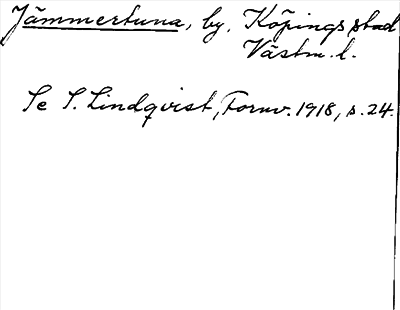 Jämmertuna, by, Köpings stad
Västm. l.
Se S. Lindqvist, Fornv. 1918, s. 24.